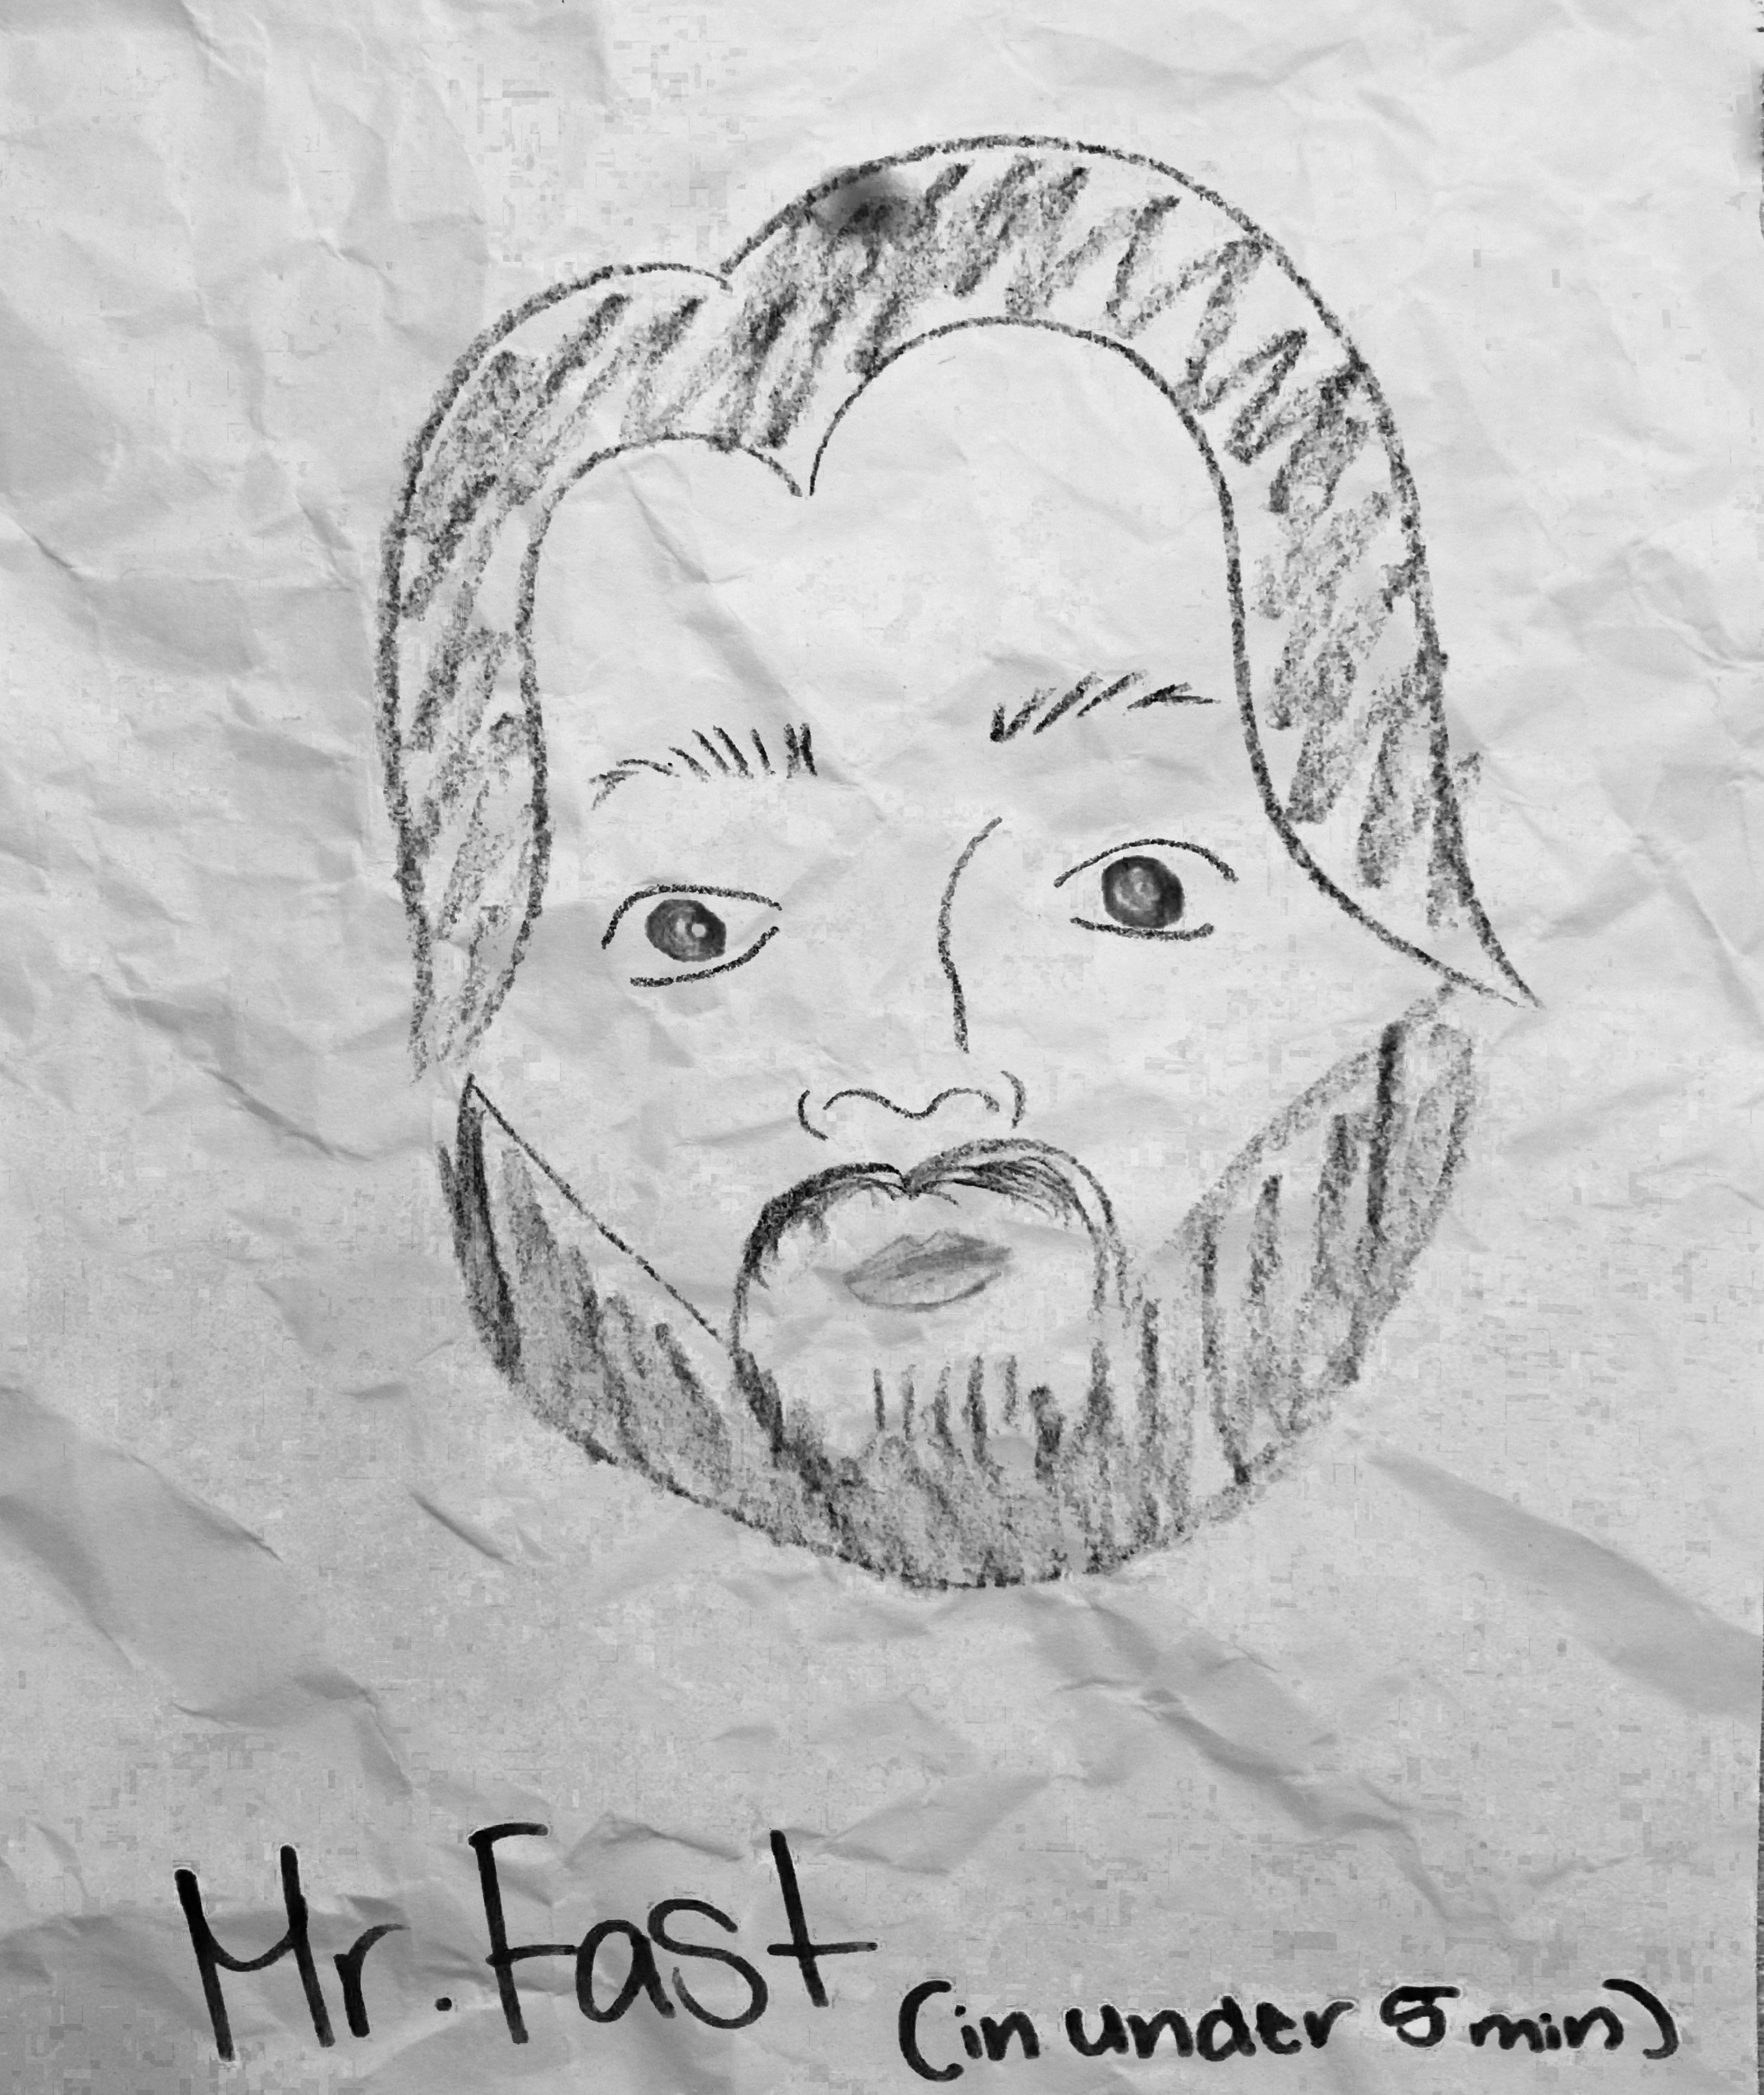 Mr. Fast
(in under 5 min)